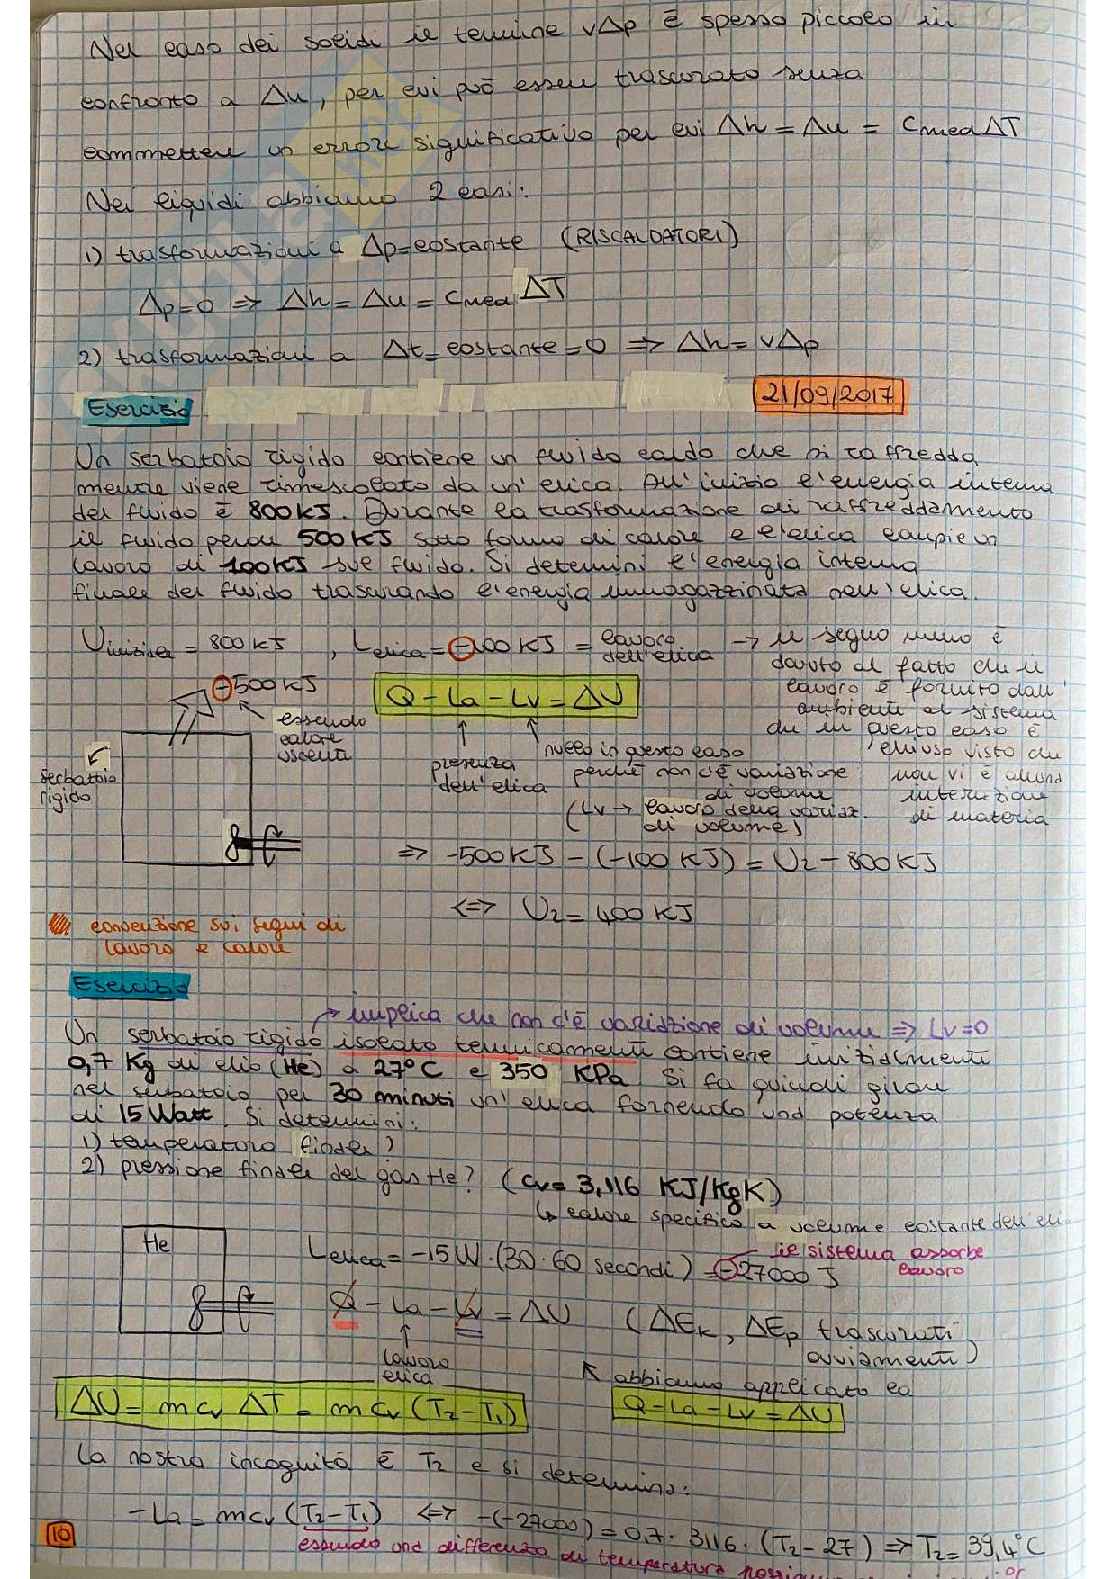 Nel caso dei solidi il termine vΔp è spesso piccolo in
confronto a Δu, per cui può essere trascurato senza
commettere un errore significativo per cui Δh = Δu = Cmed ΔT
Nei liquidi abbiamo 2 casi:
1) trasformazioni a Δp=costante (RISCALDATORI)
Δp=0 ⇒ Δh = Δu = Cmed ΔT
2) trasformazioni a Δt=costante=0 ⇒ Δh = vΔp
Esercizio
21/09/2017
Un serbatoio rigido contiene un fluido caldo che si raffredda
mentre viene rimescolato da un'elica. All'inizio l'energia interna
del fluido è 800 KJ. Durante la trasformazione di raffreddamento
il fluido perde 500 KJ sotto forma di calore e l'elica compie un
lavoro di 100 KJ sul fluido. Si determini l'energia interna
finale del fluido trascurando l'energia immagazzinata nell'elica.
Uiniziale = 800 KJ , Lelica = -100 KJ = lavoro dell'elica
→ il segno meno è
dovuto al fatto che il
lavoro è fornito dall'
ambiente al sistema
che in questo caso è
chiuso visto che
non vi è alcuna
interazione
di materia
-500 KJ
essendo
calore
uscente
Q - La - Lv = ΔU
presenza
dell'elica
nullo in questo caso
perché non c'è variazione
di volume
(Lv → lavoro della variaz.
di volume)
serbatoio
rigido
⇒ -500 KJ - (-100 KJ) = U2 - 800 KJ
⇔ U2 = 400 KJ
convenzione sui segni di
lavoro e calore
Esercizio
→ implica che non c'è variazione di volume ⇒ Lv=0
Un serbatoio rigido isolato termicamente contiene inizialmente
0,7 Kg di elio (He) a 27°C e 350 KPa. Si fa quindi girare
nel serbatoio per 30 minuti un'elica fornendo una potenza
di 15 Watt. Si determini:
1) temperatura finale?
2) pressione finale del gas He? (cv = 3,116 KJ/KgK)
↳ calore specifico a volume costante dell'eli
He
Lelica = -15W · (30 · 60 secondi) = -27000 J
il sistema assorbe
lavoro
Q - La - Lv = ΔU (ΔEk, ΔEp trascurati
ovviamente)
lavoro
elica
abbiamo applicato la
Q - La - Lv = ΔU
ΔU = m cv ΔT = m cv (T2 - T1)
La nostra incognita è T2 e si determina:
-La = mcv (T2 - T1) ⇔ -(-27000) = 0,7 · 3116 · (T2 - 27) ⇒ T2 = 39,4°C
essendo una differenza di temperatura
10